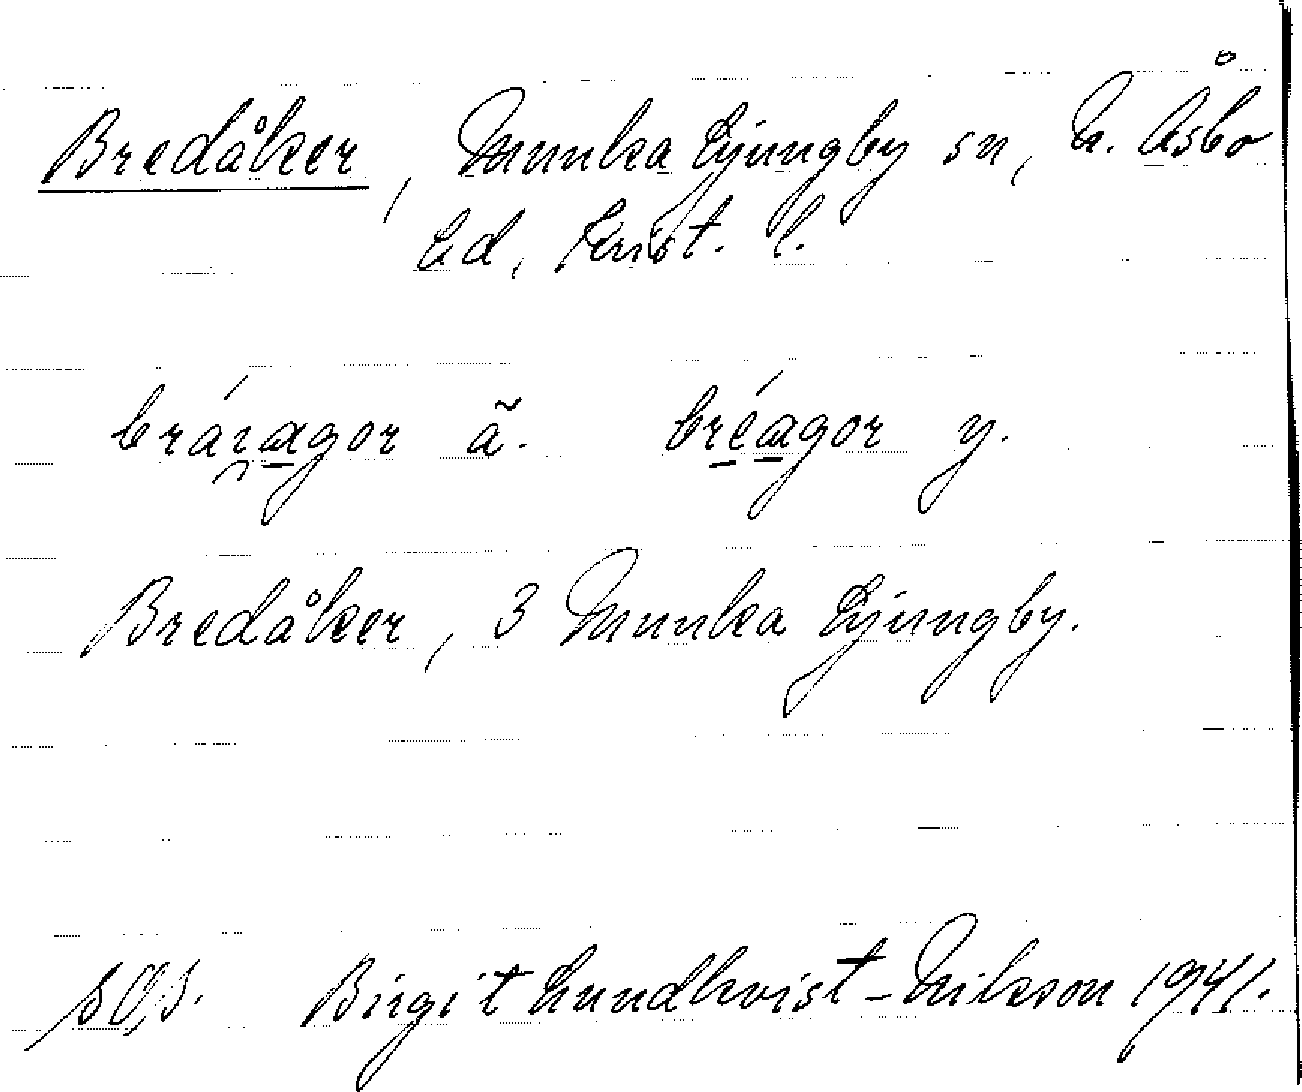 Bredåker, Munka Ljungby sn, N. Åsbo
hd, Krist. l.
bráɪagor ä. bréagor y.
Bredåker, 3 Munka Ljungby.
Birgit Lundkvist-Nilsson 1941.